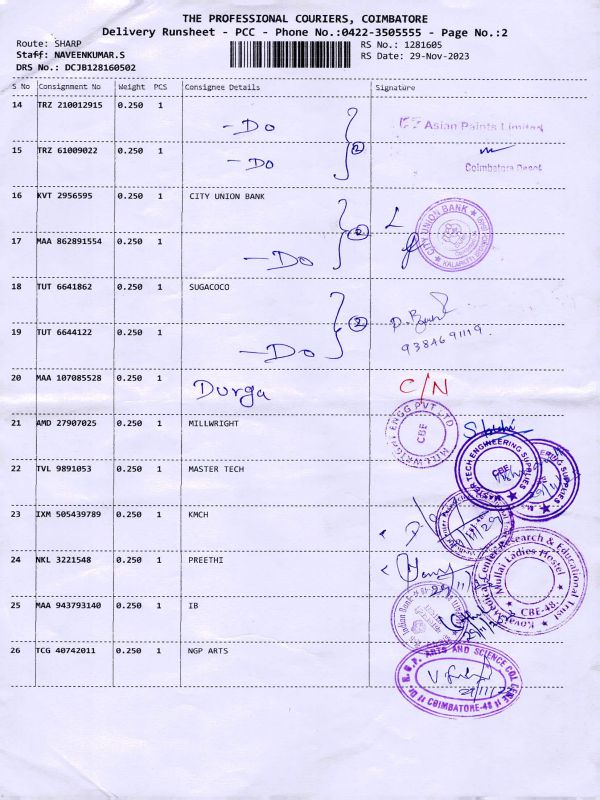 THE PROFESSIONAL COURIERS, COIMBATORE
Delivery Runsheet - PCC - Phone No.:0422-3505555 - Page No.:2
Route: SHARP RS No.: 1281605
Staff: NAVEENKUMAR.S RS Date: 29-Nov-2023
DRS No.: DCJB128160502
S No Consignment No Weight PCS Consignee Details Signature
14 TRZ 210012915 0.250 1 -Do Asian Paints Limited
15 TRZ 61009022 0.250 1 -Do 2 Coimbatore Depot
16 KVT 2956595 0.250 1 CITY UNION BANK
CITY UNION BANK
17 MAA 862891554 0.250 1 -Do 2
18 TUT 6641862 0.250 1 SUGACOCO
19 TUT 6644122 0.250 1 -Do 2 9384691119.
20 MAA 107085528 0.250 1 Durga C/N
21 AMD 27907025 0.250 1 MILLWRIGHT
MILLWRIGHT ENGG PVT LTD
CBE
22 TVL 9891053 0.250 1 MASTER TECH
MASTER TECH ENGINEERING SUPPLIES
CBE
23 IXM 505439789 0.250 1 KMCH
29/11/23
24 NKL 3221548 0.250 1 PREETHI
Kovai Medical Center Research & Educational Trust
Mullai Ladies Hostel
CBE-48.
25 MAA 943793140 0.250 1 IB
Indian Bank
26 TCG 40742011 0.250 1 NGP ARTS
Dr. N.G.P. ARTS AND SCIENCE COLLEGE
COIMBATORE-48